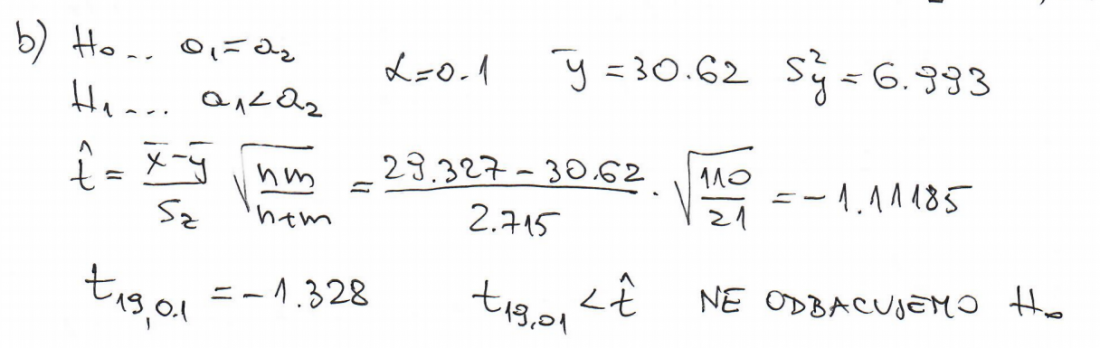 b) H₀... a₁=a₂
α=0.1 ȳ=30.62 S²y=6.993
H₁.... a₁<a₂
t̂ = (x̄-ȳ)/S_z √(nm/(n+m)) = (29.327-30.62)/2.715 · √(110/21) = -1.11185
t₁₉,₀.₁ = -1.328 t₁₉,₀₁ < t̂ NE ODBACUJEMO H₀